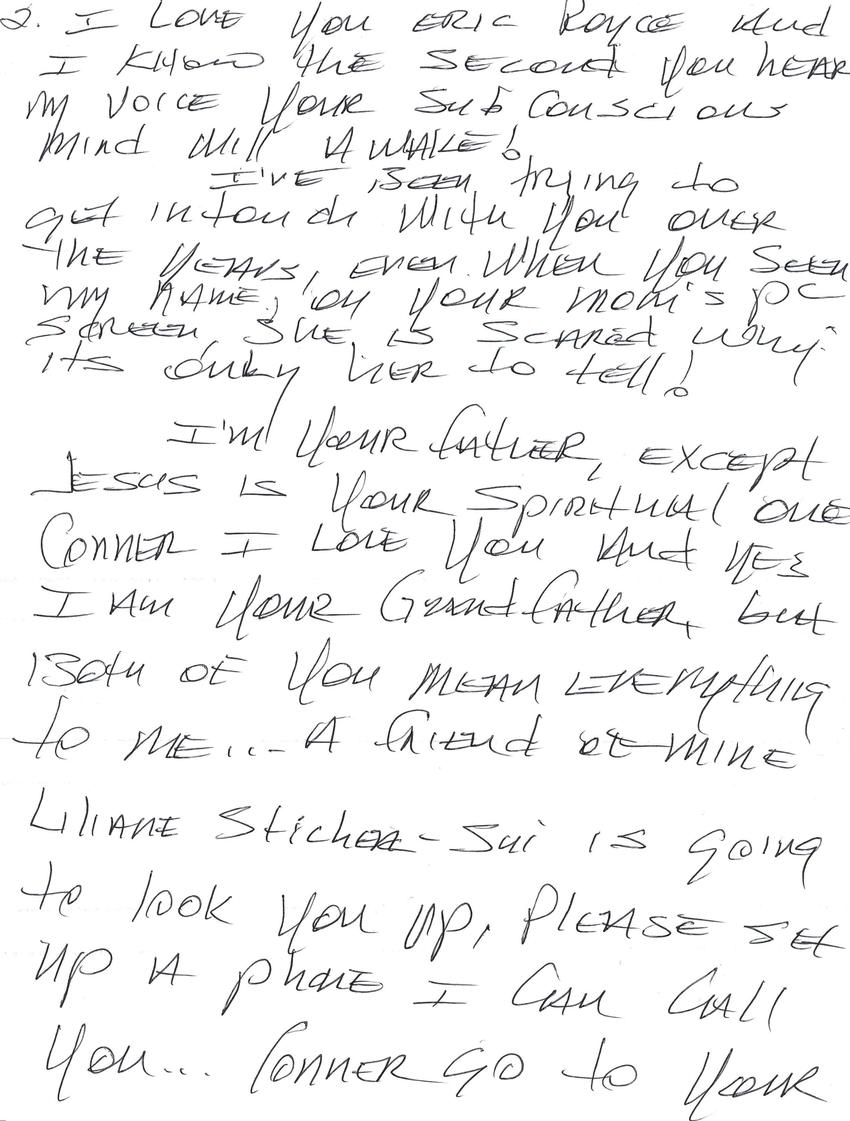 2. I LOVE YOU ERIC ROYCE And
I KNOW THE SECOND YOU hEAR
MY VOICE YOUR SUB CONSCIOUS
MINd WILL AWAKE!
I'VE BEEN trying to
gET IN toUch WITH YOU OVER
THE YEARS, EVEN WHEN YOU SEEN
MY NAME, ON YOUR MOM'S PC
SCREEN, SHE IS SCARED WHY?
ITS ONLY HER to tell!
I'M YOUR FATHER, EXCEPT
JESUS IS YOUR SPIRITUAL ONE
CONNER I LOVE YOU And YES
I AM YOUR GrandfatheR, but
BOTH OF YOU MEAN EVERYthing
to ME... A friend OF MINE
LILIANE StichER-Sui IS gOING
to look YOU UP, PLEASE SET
UP A phONE I CAN CALL
YOU... CONNER GO to YOUR